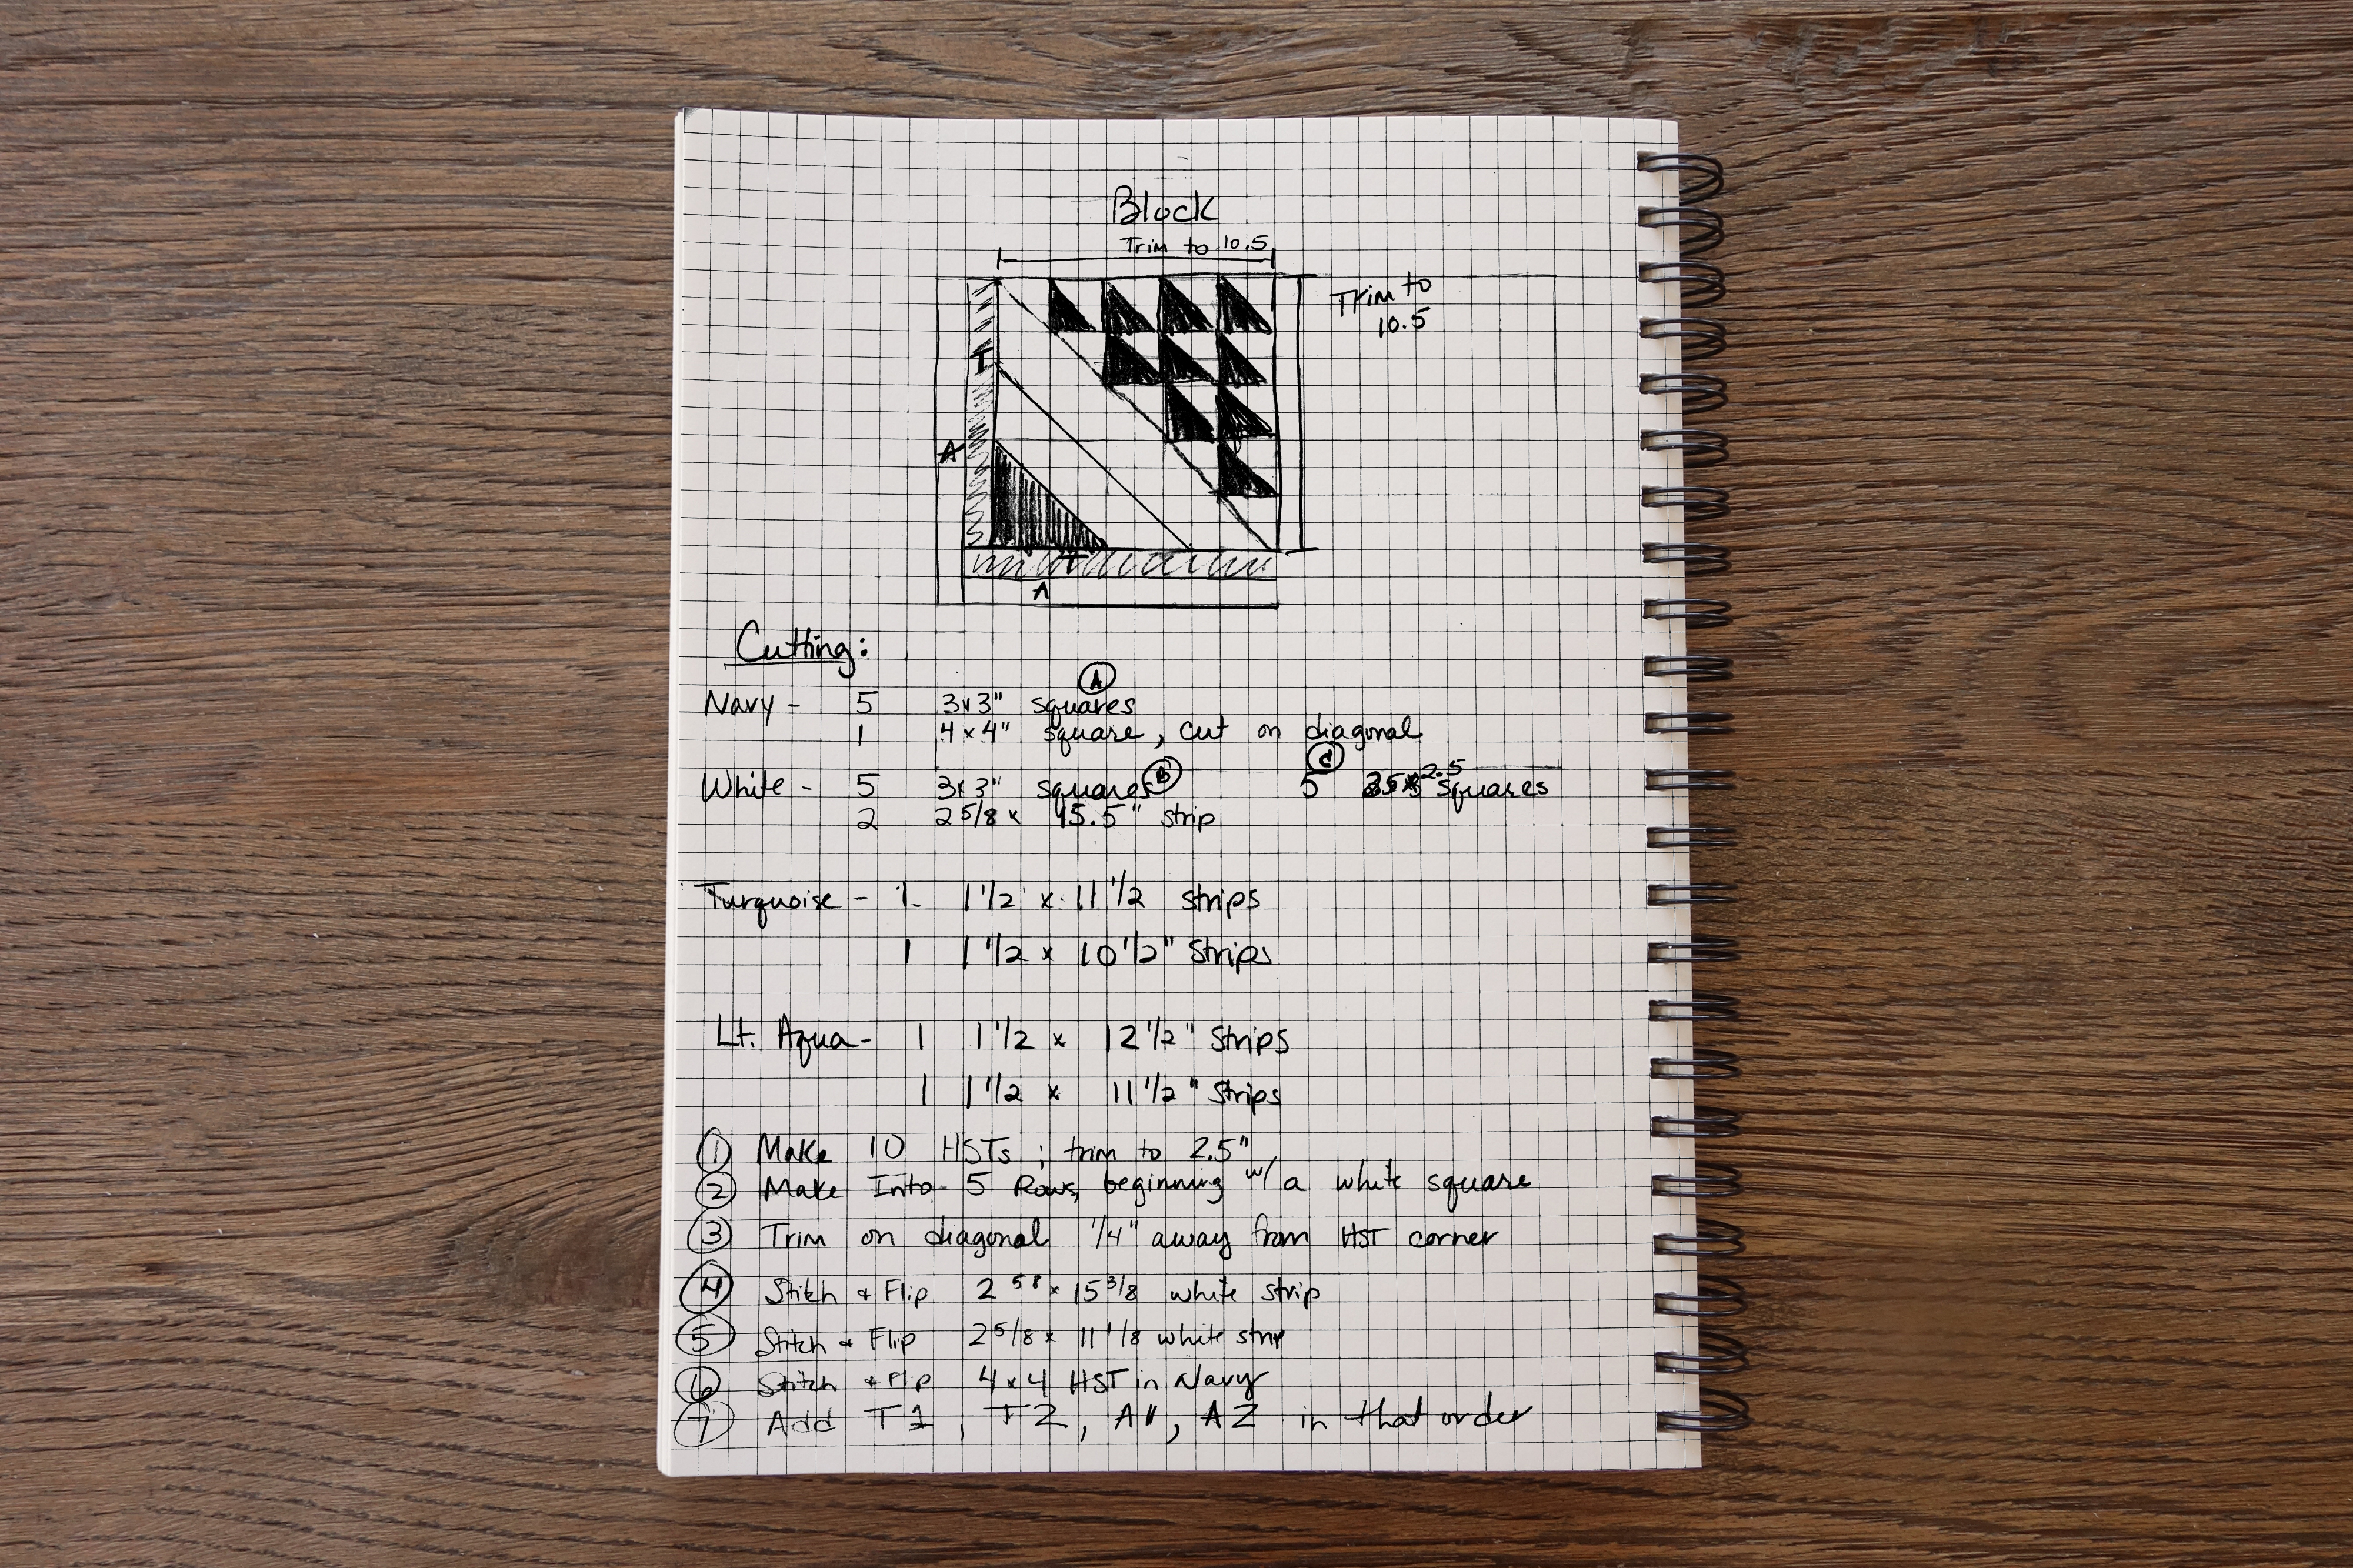 Block
Trim to 10.5
Trim to
10.5
T
A
T
A
Cutting:
A
Navy - 5 3x3" squares
1 4x4" square, cut on diagonal
C
White - 5 3x3" squares B 5 2.5 squares
2 2 5/8 x 15.5" strip
Turquoise - 1 1 1/2 x 11 1/2 strips
1 1 1/2 x 10 1/2" Strips
Lt. Aqua - 1 1 1/2 x 12 1/2" Strips
1 1 1/2 x 11 1/2" Strips
① Make 10 HSTs ; trim to 2.5"
② Make Into 5 Rows, beginning w/ a white square
③ Trim on diagonal 1/4" away from HST corner
④ Stitch & Flip 2 58 x 15 3/8 white strip
⑤ Stitch & Flip 2 5/8 x 11 1/8 white strip
⑥ Stitch & Flip 4x4 HST in Navy
⑦ Add T1, T2, A1, A2 in that order